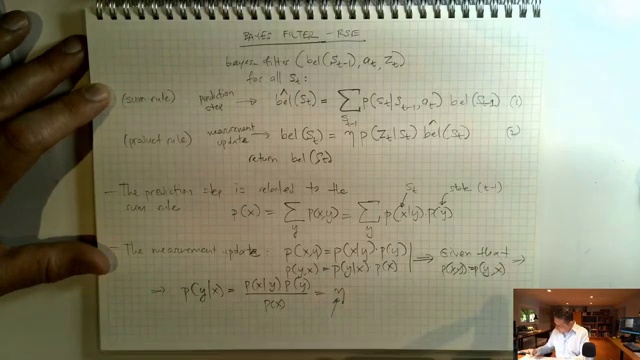 BAYES FILTER - RSE
bayes filter (bel(S_{t-1}), a_t, Z_t)
for all S_t:
(sum rule) prediction step → b̂el(S_t) = ∑_{S_{t-1}} p(S_t|S_{t-1}, a_t) bel(S_{t-1}) (1)
(product rule) measurement update → bel(S_t) = η p(Z_t|S_t) b̂el(S_t) (2)
return bel(S_t)
- The prediction step is related to the S_t state (t-1)
sum rule p(x) = ∑_y p(x,y) = ∑_y p(x|y) · p(y)
- The measurement update: p(x,y) = p(x|y) · p(y) ⟹ Given that ⟹
p(y,x) = p(y|x) p(x) p(x,y) = p(y,x)
⟹ p(y|x) = p(x|y) p(y) / p(x) = η